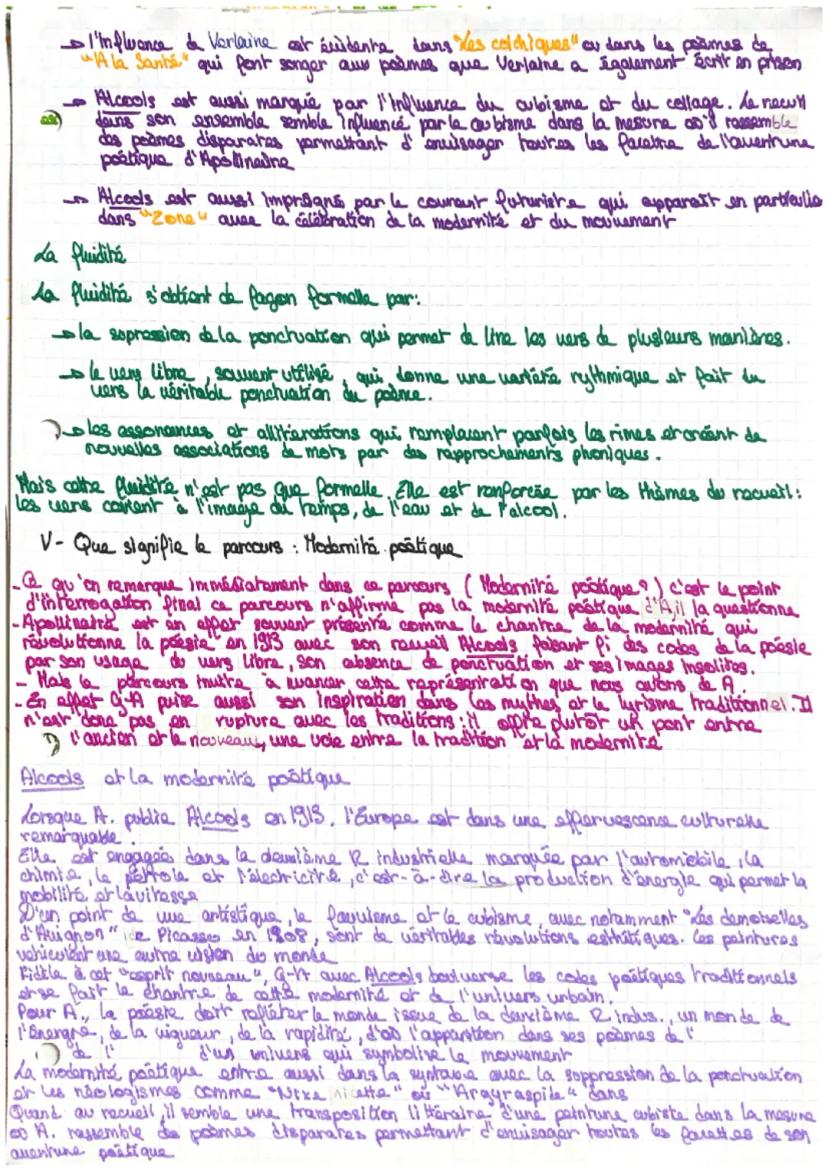 → l'Influence de Verlaine est évidente dans "Les colchiques" ou dans les poèmes de
"A la Santé" qui font songer aux poèmes que Verlaine a également écrit en prison
→ Alcools est aussi marqué par l'Influence du cubisme et du collage. Le recueil
dans son ensemble semble influencé par le cubisme dans la mesure où il rassemble
des poèmes disparates permettant d'envisager toutes les facettes de l'aventure
poétique d'Apollinaire
→ Alcools est aussi imprégné par le courant futuriste qui apparaît en particulier
dans "Zone" avec la célébration de la modernité et du mouvement
La fluidité
La fluidité s'obtient de façon formelle par:
→ la supression de la ponctuation qui permet de lire les vers de plusieurs manières.
→ le vers libre, souvent utilisé, qui donne une variété rythmique et fait du
vers la véritable ponctuation du poème.
→ les assonances et allitérations qui remplacent parfois les rimes et créent de
nouvelles associations de mots par des rapprochements phoniques.
Mais cette fluidité n'est pas que formelle. Elle est renforcée par les thèmes du recueil:
les vers coulent à l'image du temps, de l'eau et de l'alcool.
V- Que signifie le parcours : Modernité poétique
- Ce qu'on remarque immédiatement dans ce parcours ( Modernité poétique ? ) c'est le point
d'interrogation final ce parcours n'affirme pas la modernité poétique d'A, il la questionne
- Apollinaire est en effet souvent présenté comme le chantre de la modernité qui
révolutionne la poésie en 1913 avec son recueil Alcools faisant fi des codes de la poésie
par son usage du vers libre, son absence de ponctuation et ses images insolites.
- Mais le parcours invite à nuancer cette représentation que nous avons de A.
- En effet G-A puise aussi son inspiration dans les mythes et le lyrisme traditionnel. Il
n'est donc pas en rupture avec les traditions: il offre plutôt un pont entre
l'ancien et le nouveau, une voie entre la tradition et la modernité
Alcools et la modernité poétique
Lorsque A. publie Alcools en 1913, l'Europe est dans une effervescence culturelle
remarquable.
Elle est engagée dans la deuxième R industrielle marquée par l'automobile, la
chimie, le pétrole et l'électricité, c'est-à-dire la production d'énergie qui permet la
mobilité et la vitesse
D'un point de vue artistique, le fauvisme et le cubisme, avec notamment "Les demoiselles
d'Avignon" de Picasso en 1908, sont de véritables révolutions esthétiques. Ces peintures
véhiculent une autre vision du monde
Fidèle à cet "esprit nouveau", G-A avec Alcools bouleverse les codes poétiques traditionnels
et se fait le chantre de cette modernité et de l'univers urbain.
Pour A., la poésie doit refléter le monde issue de la deuxième R indus., un monde de
l'énergie, de la vigueur, de la rapidité, d'où l'apparition dans ses poèmes de l'
de l' d'un univers qui symbolise le mouvement
La modernité poétique entre aussi dans la syntaxe avec la suppression de la ponctuation
et les néologismes comme "Nixe nicette" ou "Argyraspide" dans
Quand au recueil il semble une transposition littéraire d'une peinture cubiste dans la mesure
où A. rassemble des poèmes disparates permettant d'envisager toutes les facettes de son
aventure poétique